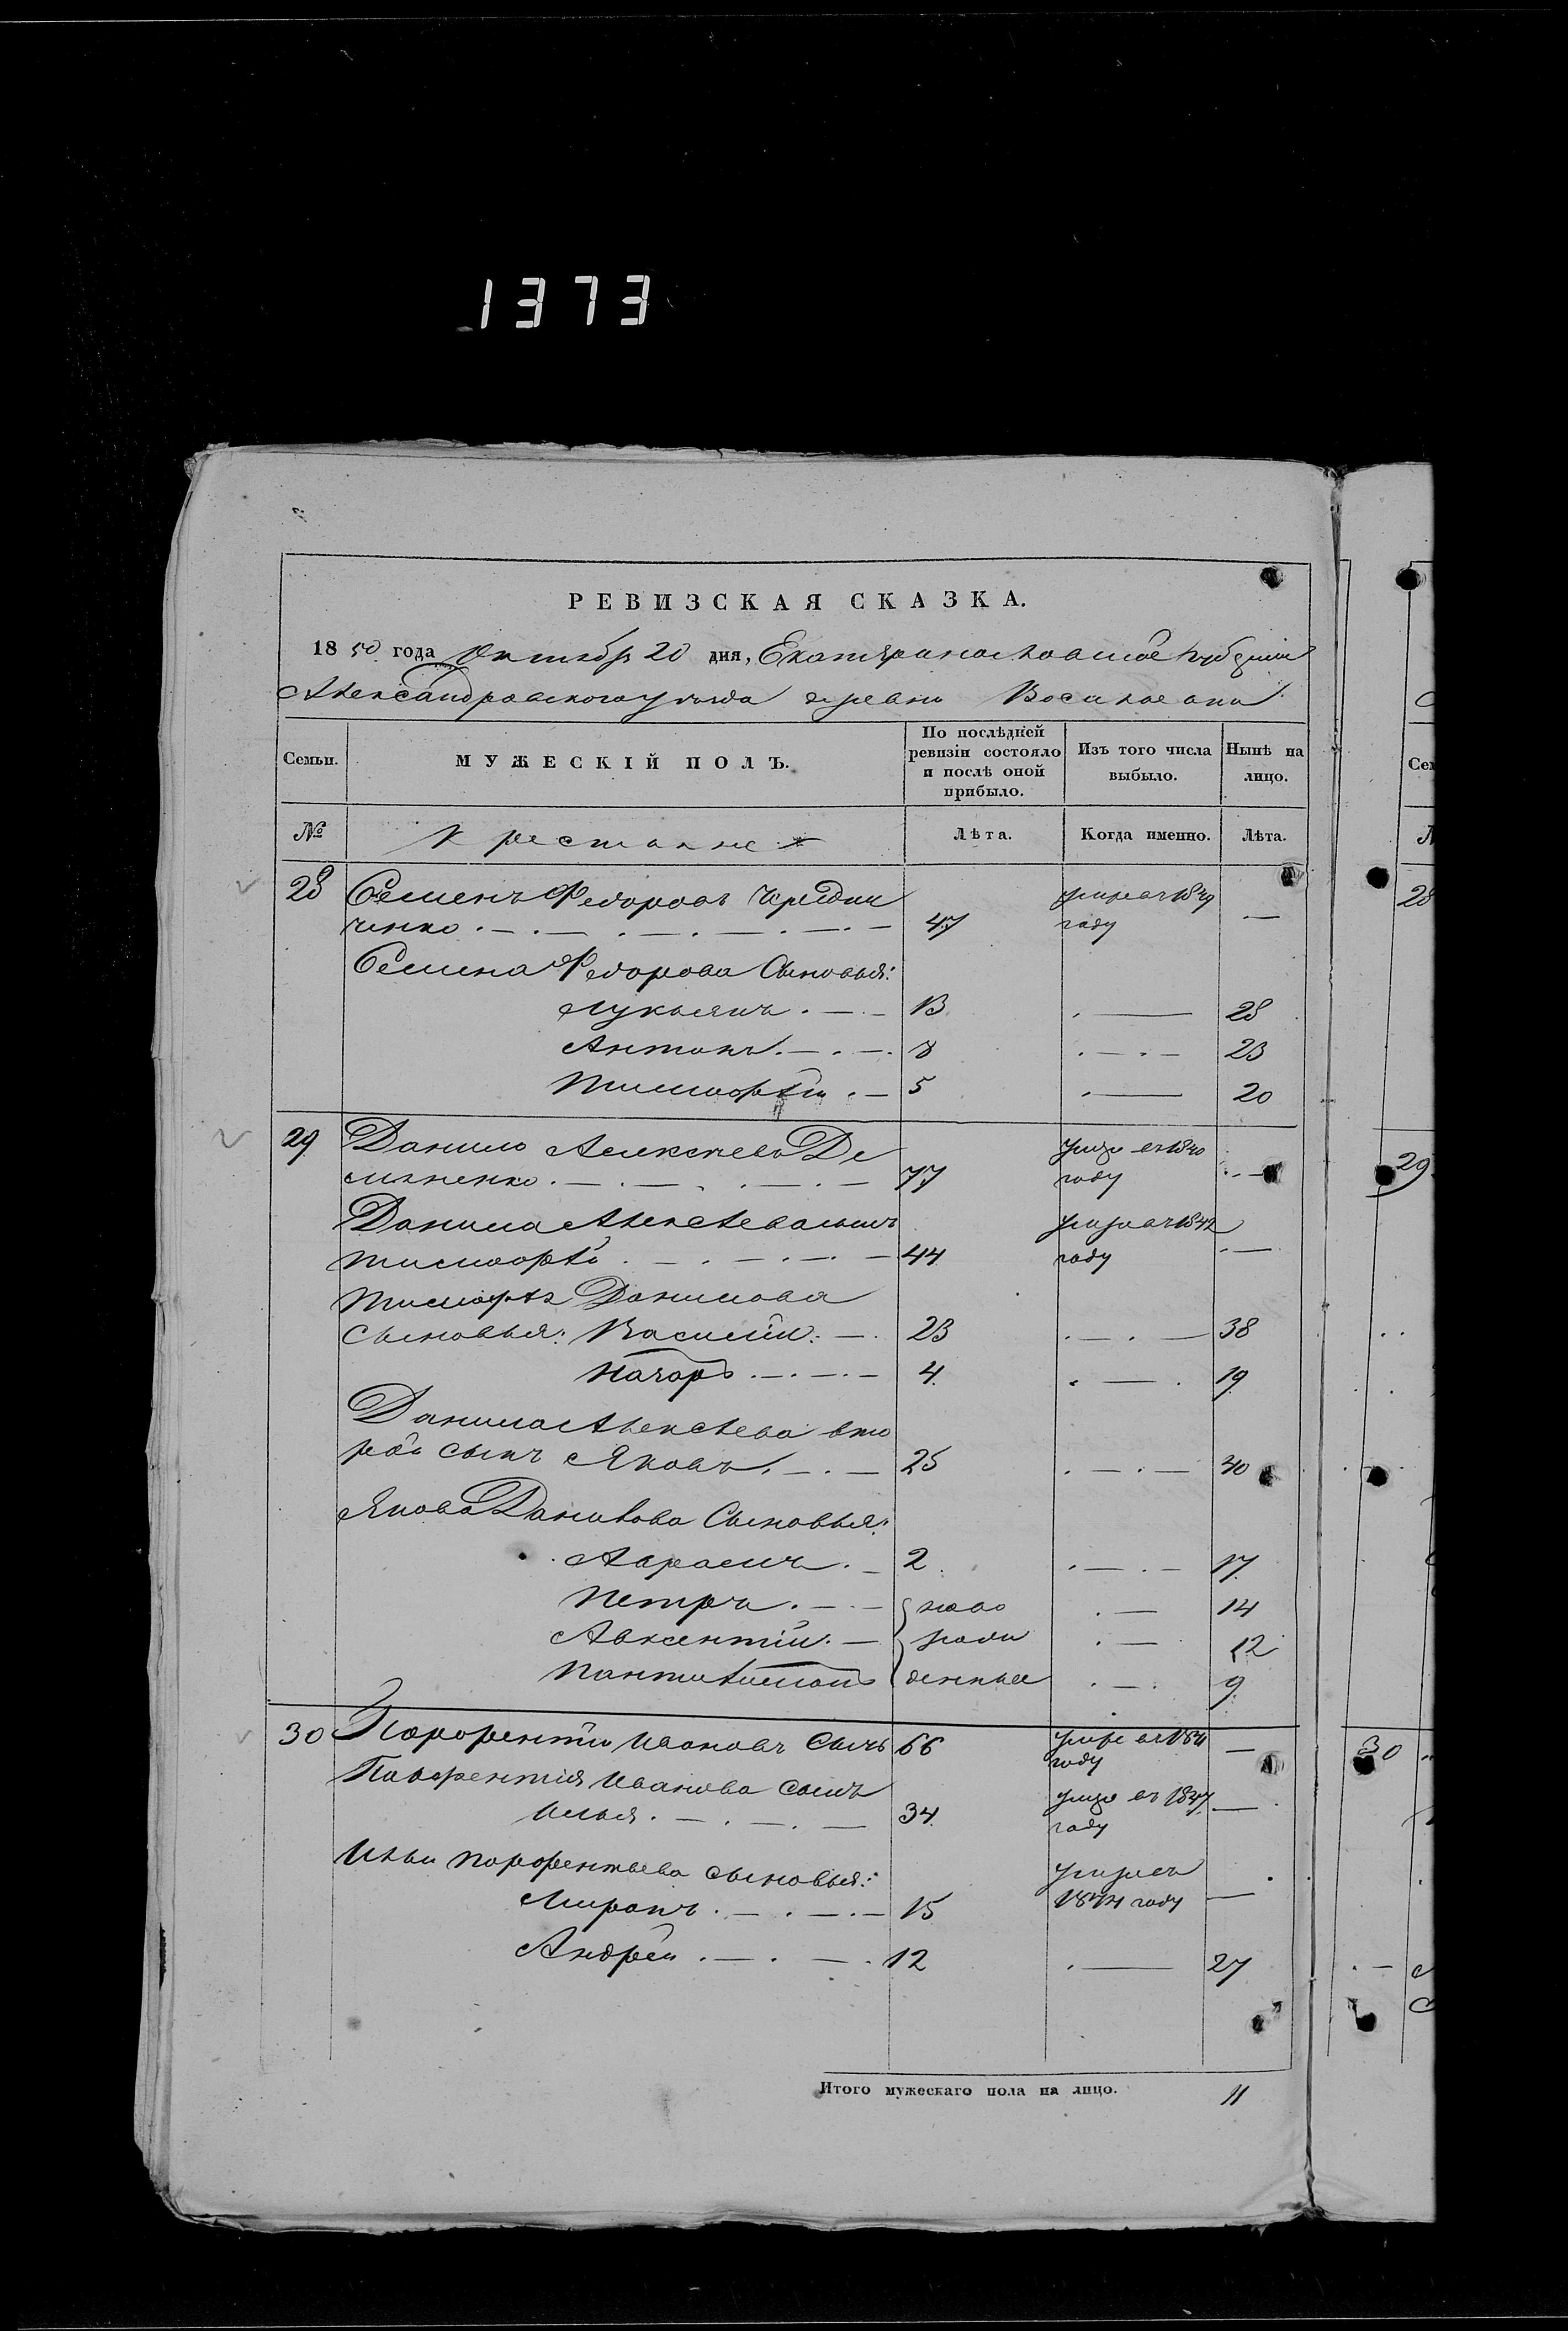 1373
РЕВИЗСКАЯ СКАЗКА.
1850 года Октября 20 дня, Екатеринославской Губернии
Александровского уезда деревни
Семьи. МУЖЕСКІЙ ПОЛЪ. По послѣдней ревизіи состояло и послѣ оной прибыло. Изъ того числа выбыло. Нынѣ на лицо.
№ Крестьяне Лѣта. Когда именно. Лѣта.
28 Семенъ Федоровъ Чередни
ченко 47 умре въ 1849 году —
Семена Федорова Сыновья:
Лукьянъ 13 — 28
Антонъ 8 — 23
Тимофѣй 5 — 20
29 Данило Алексѣевъ Де
мяненко 77 умре въ 1840 году —
Данила Алексѣева сынъ
Тимофѣй 44 умре въ 1842 году —
Тимофѣя Данилова
Сыновья: Василій 23 — 38
Назаръ 4 — 19
Данила Алексѣева вто
рой сынъ Яковъ 25 — 40
Якова Данилова Сыновья:
2 — 17
Петръ ново — 14
Авксентій рож — 12
Пантилимонъ денные — 9
30 Парфентій Ивановъ Сычъ 66 умре въ году —
Парфентія Иванова Сынъ
Илья 34 умре въ 1847 году —
Ильи Парфентьева сыновья:
Миронъ 15 умре въ 1844 году —
Андрей 12 — 27
Итого мужескаго пола на лицо. 11
28
29
30